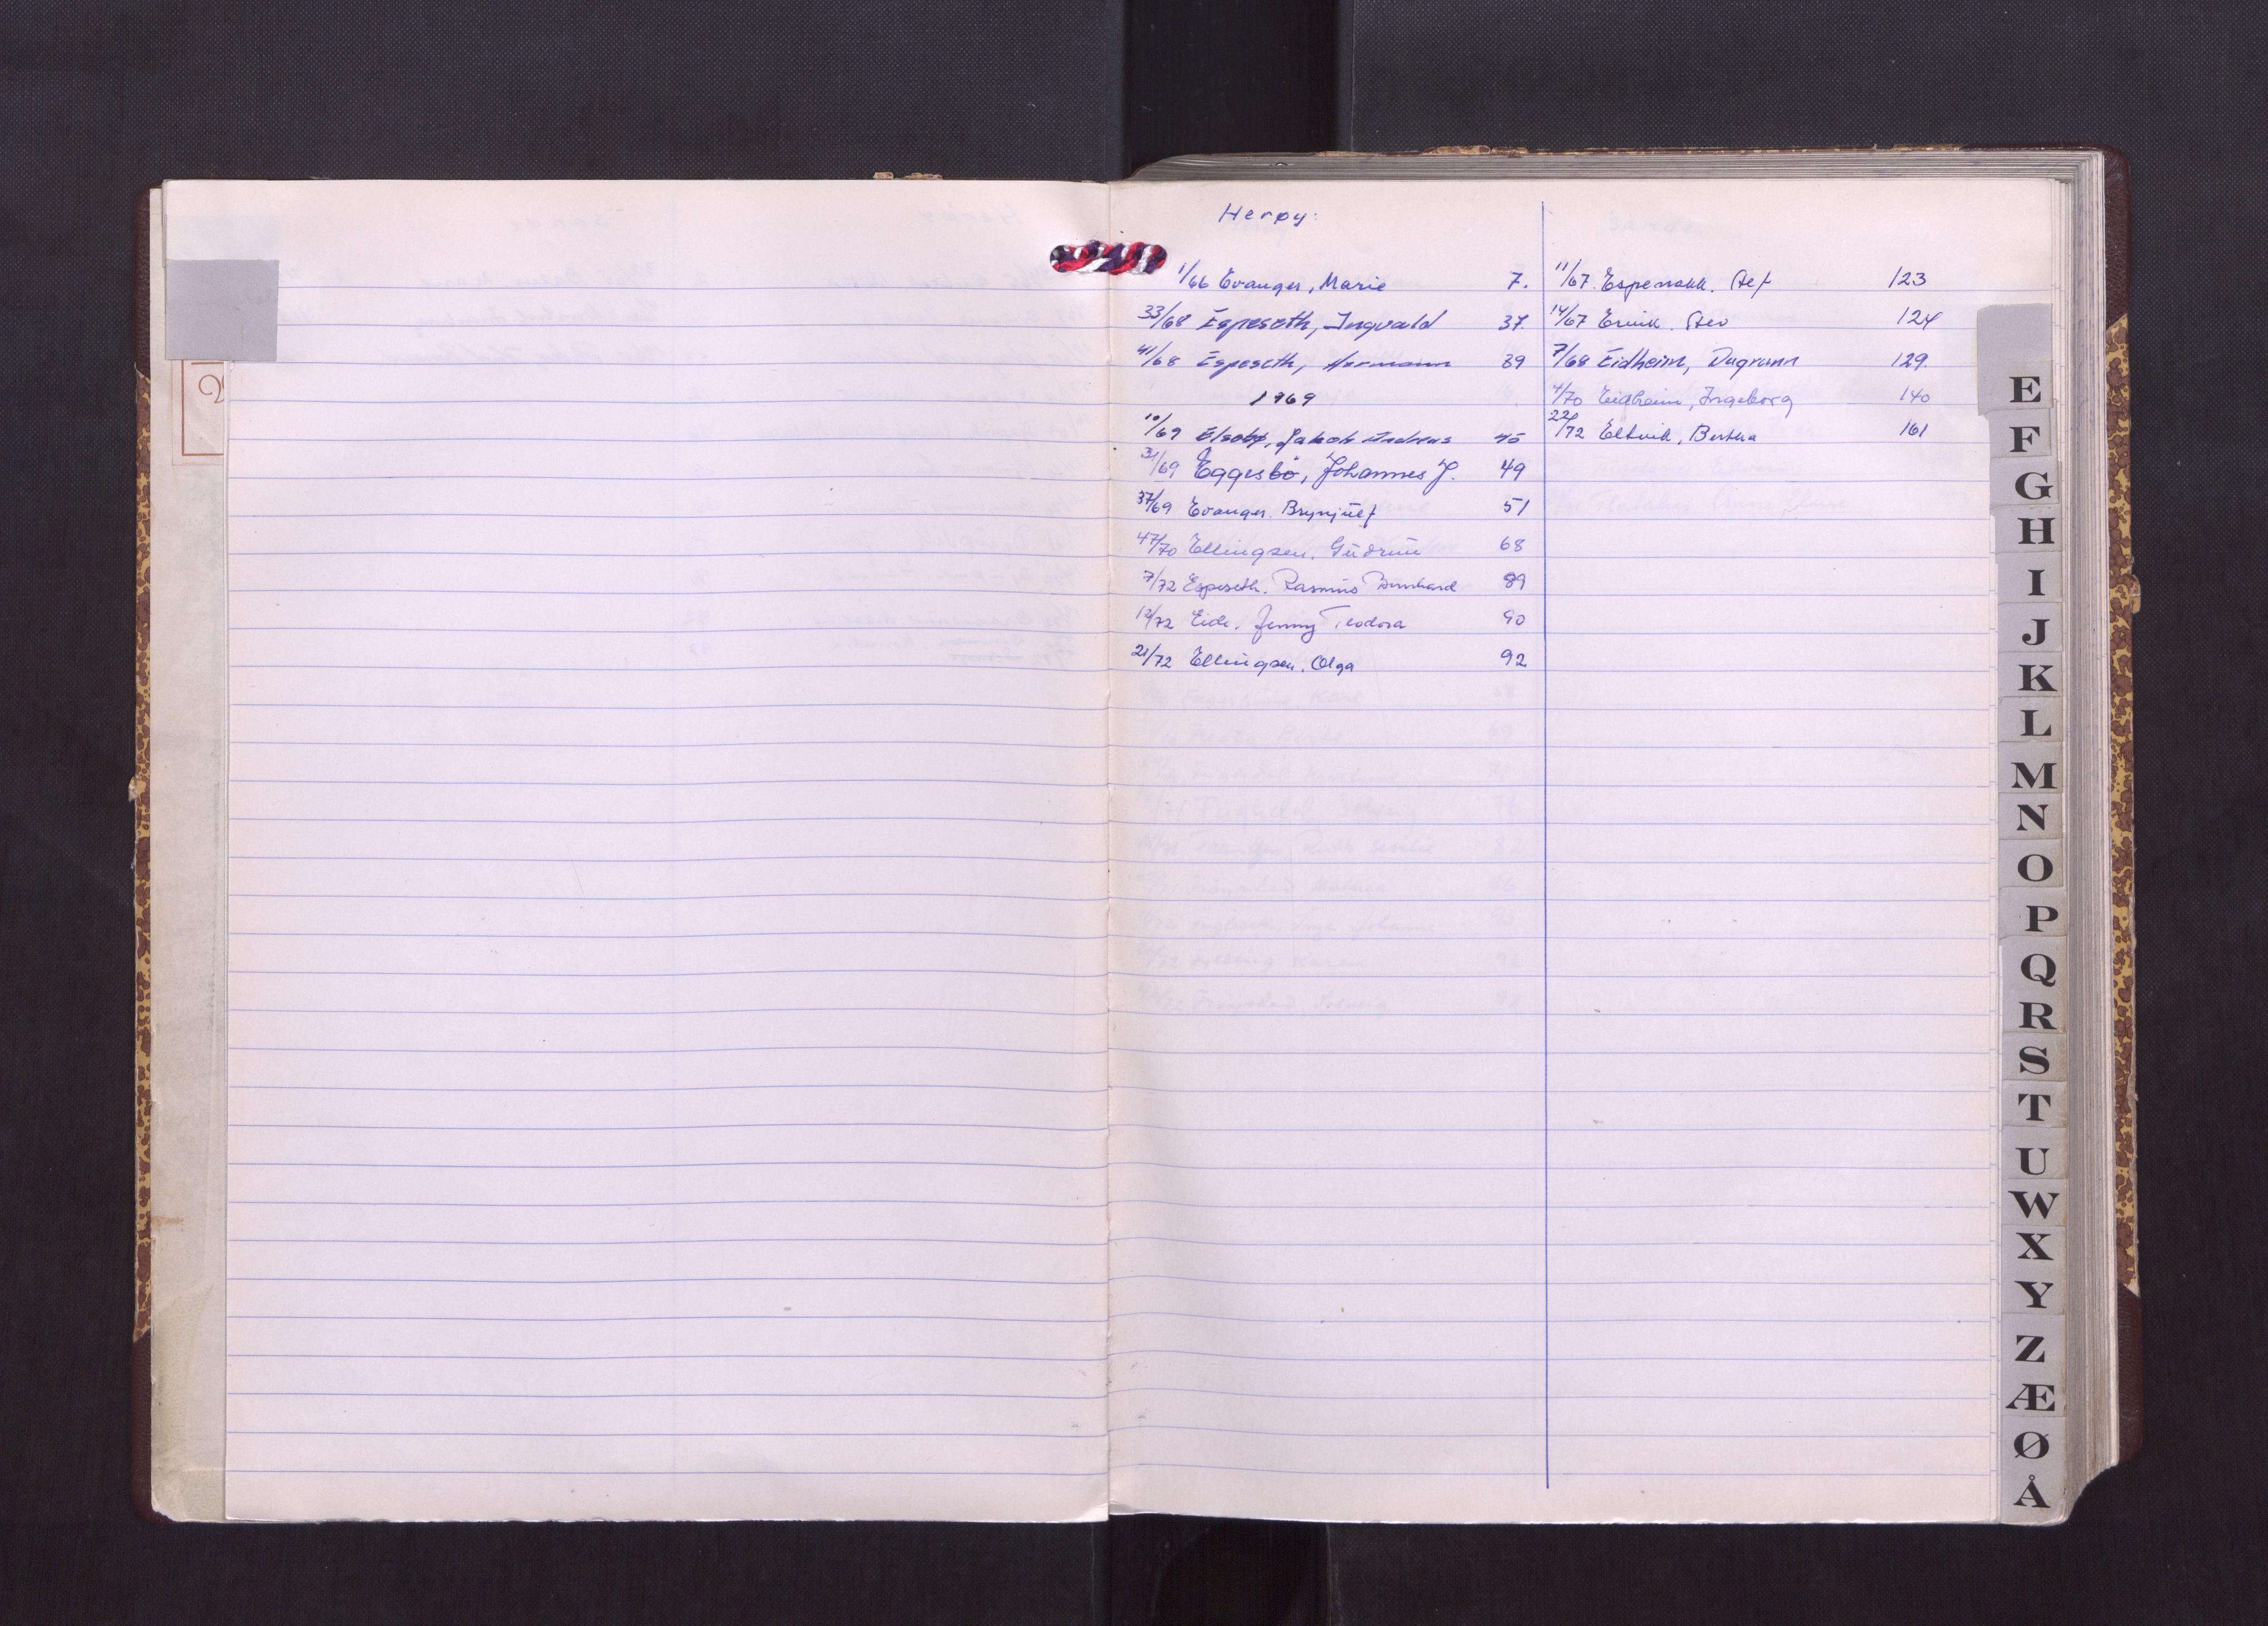 Herøy:
1/66 Evanger, Marie 7.
33/68 Espeseth, Ingvald 37.
41/68 Espeseth, Hermann 39
1969
10/69 Elsebø, Jakob Andreas 45
31/69 Eggesbö, Johannes J. 49
37/69 Evanger. Brynjulf 51
47/70 Ellingsen. Gudrun 68
7/72 Espeseth. Rasmus Bernhard 89
12/72 Eide. Jenny Teodora 90
21/72 Ellingsen. Olga 92
11/67. 123
14/67 124
7/68 Eidheim, Dagrunn 129.
4/70 Eidheim, Ingeborg 140
22/72 Eltvik, Bertha 161
E
F
G
H
I
J
K
L
M
N
O
P
Q
R
S
T
U
W
X
Y
Z
Æ
Ø
Å